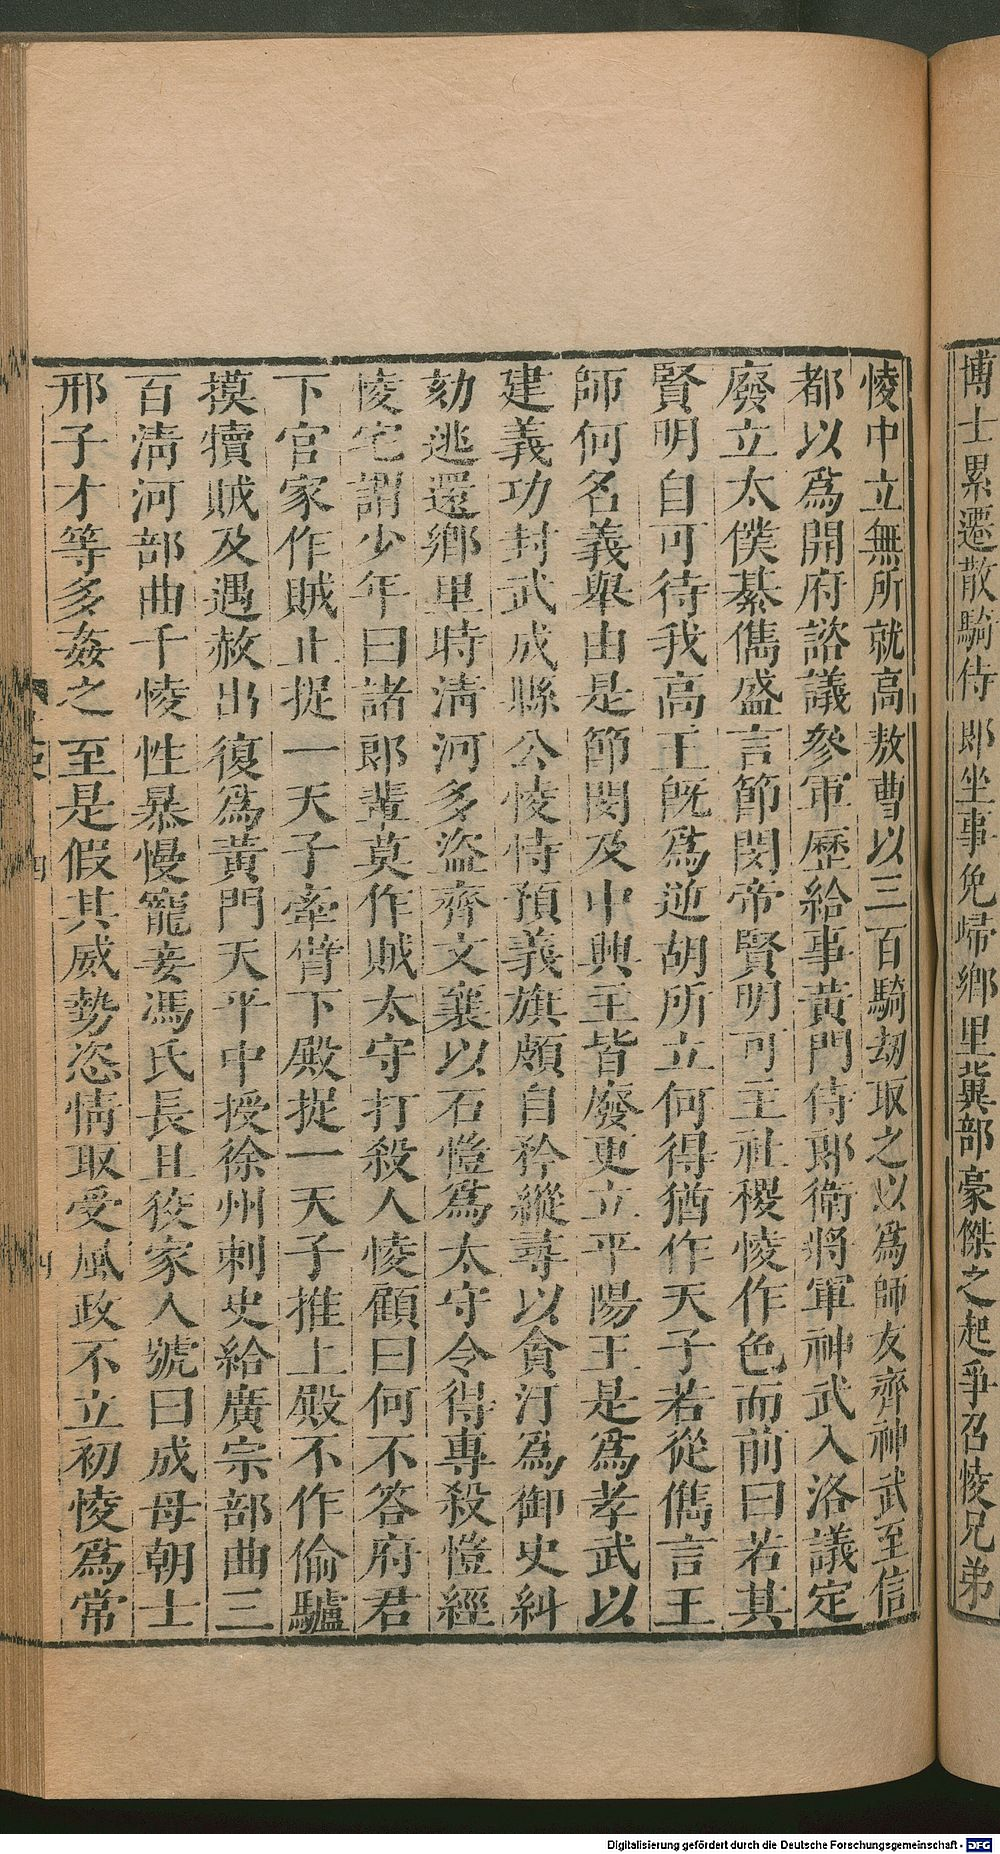 博士累遷散騎侍郎坐事免歸鄉里冀部豪傑之起爭召㥄兄弟
㥄中立無所就高敖曹以三百騎刼取之以爲師友齊神武至信
都以爲開府諮議參軍歷給事黃門侍郎衛將軍神武入洛議定
廢立太僕綦儁盛言節閔帝賢明可主社稷㥄作色而前曰若其
賢明自可待我高王旣爲逆胡所立何得猶作天子若從儁言王
師何名義舉由是節閔及中興主皆廢更立平陽王是爲孝武以
建義功封武成縣公㥄恃預義旗頗自矜縱尋以貪汙爲御史糾
劾逃還鄉里時清河多盜齊文襄以石愷爲太守令得專殺愷經
㥄宅謂少年曰諸郎輩莫作賊太守打殺人㥄顧曰何不答府君
下官家作賊止捉一天子牽臂下殿捉一天子推上殿不作偷驢
摸犢賊及遇赦出復爲黃門天平中授徐州刺史給廣宗部曲三
百清河部曲千㥄性暴慢寵妾馮氏長且姣家人號曰成母朝士
邢子才等多姦之至是假其威勢恣情取受風政不立初㥄爲常
Digitalisierung gefördert durch die Deutsche Forschungsgemeinschaft - DFG